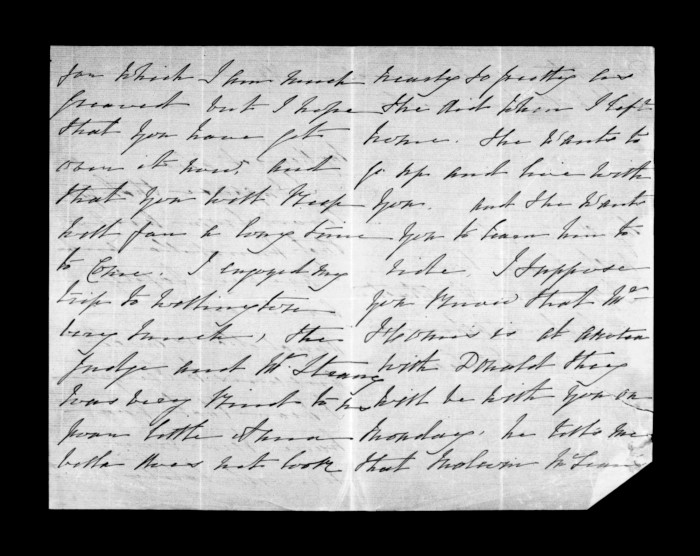 for which I am much
greaved but I hope
that you have get
over it now, and
that you will keep
well for a long time
to come. I enjoyed my
trip to Wellington
very much, the
Judge and Mr Strang
was very kind to me
poor little Anna
bella does not look
nearly so pretty as
she did when I left
home. She wants to
go up and live with
you. and she wants
you to learn him to
ride. I suppose
you know that Mr
is at
with Donald they
will be with you on
Monday, he tells me
that McLean